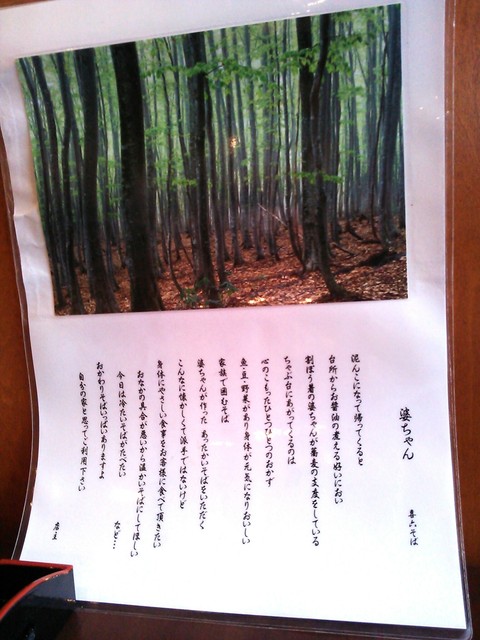 婆ちゃん
喜六そば
泥んこになって帰ってくると
台所からお醤油の煮える好いにおい
割ぽう着の婆ちゃんが蕎麦の支度をしている
ちゃぶ台にあがってくるのは
心のこもったひとつひとつのおかず
魚・豆・野菜があり身体が元気になりおいしい
家族で囲むそば
婆ちゃんが作った あったかいそばをいただく
こんなに懐かしくて派手ではないけど
身体にやさしい食事をお客様に食べて頂きたい
おなかの具合が悪いから温かいそばにしてほしい
今日は冷たいそばがたべたい
など…
おかわりそばいっぱいありますよ
自分の家と思ってご利用下さい
店主